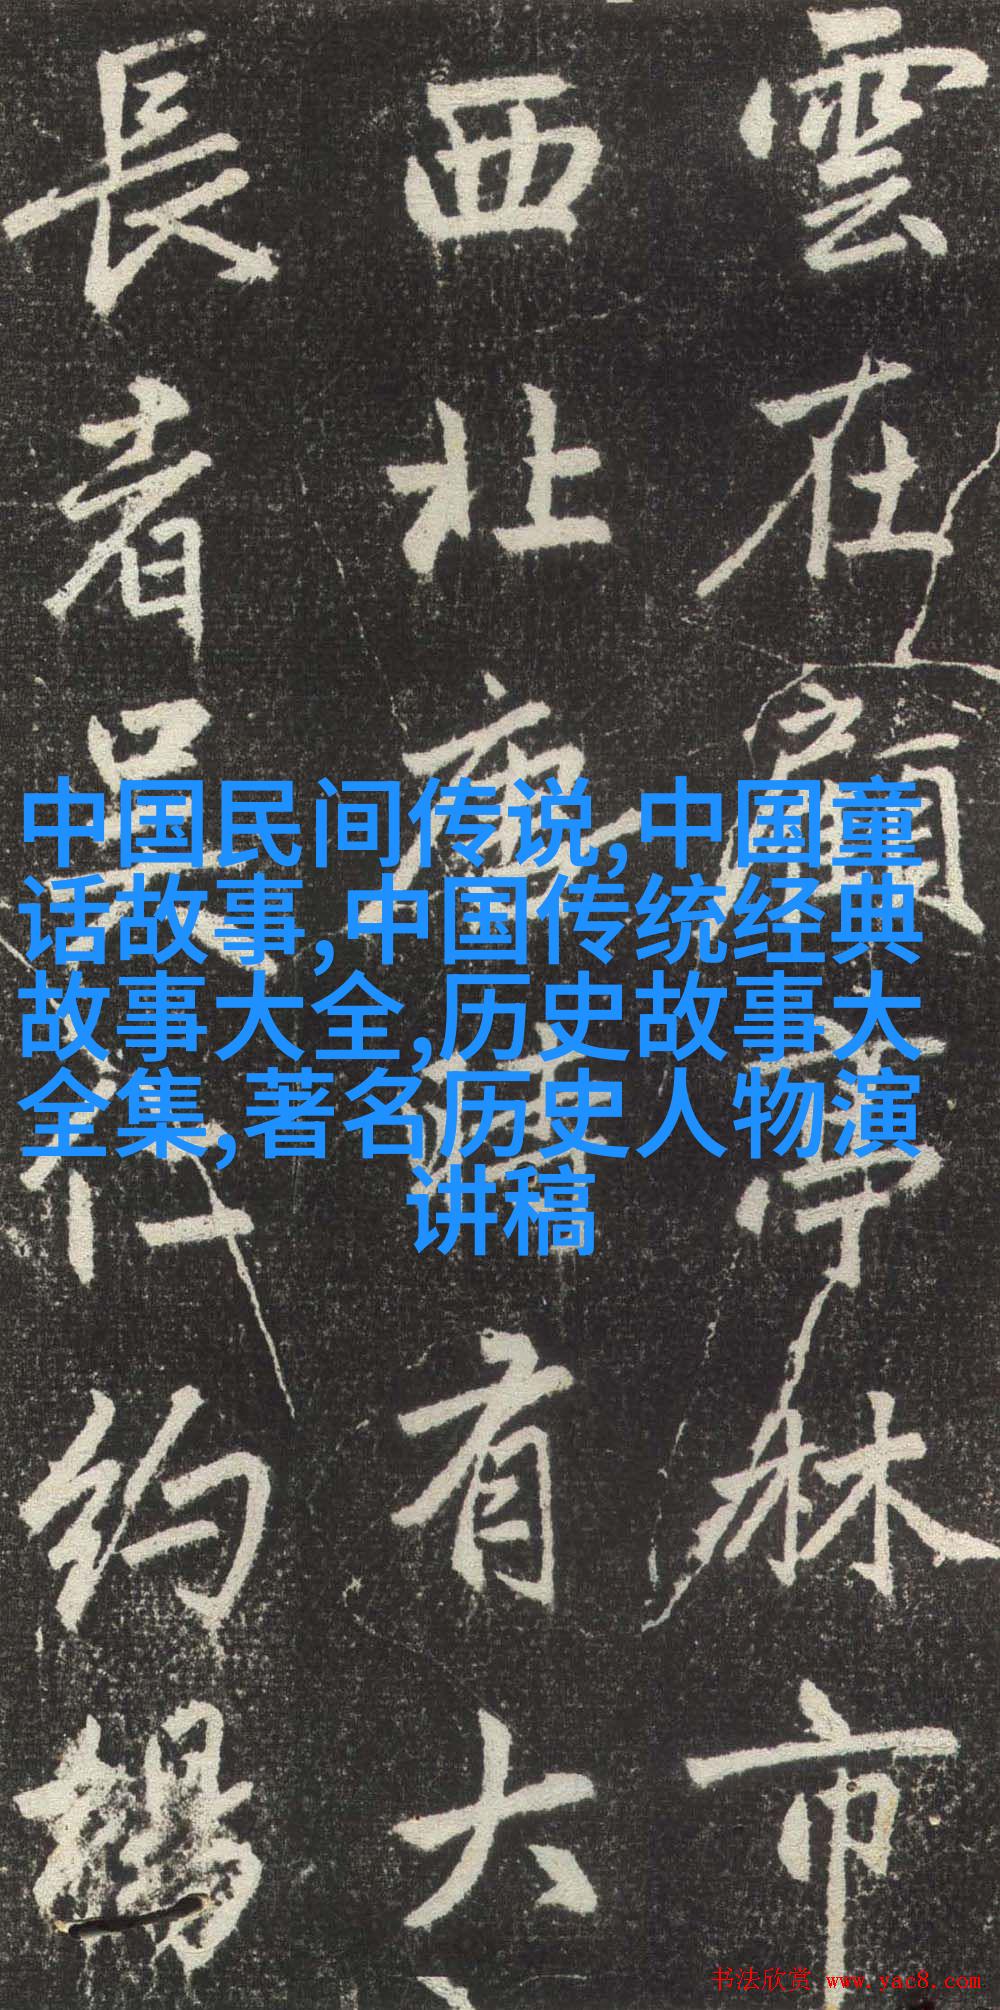 雲在顧
林市
西北
有大
長者吳
約
中国民间传说,中国童
话故事,中国传统经典
故事大全,历史故事大
全集,著名历史人物演
讲稿
书法欣赏 www.yac8.com